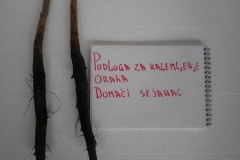 PODLOGA ZA KALEMLJENJE
ORAHA
DOMAĆI SEJANAC